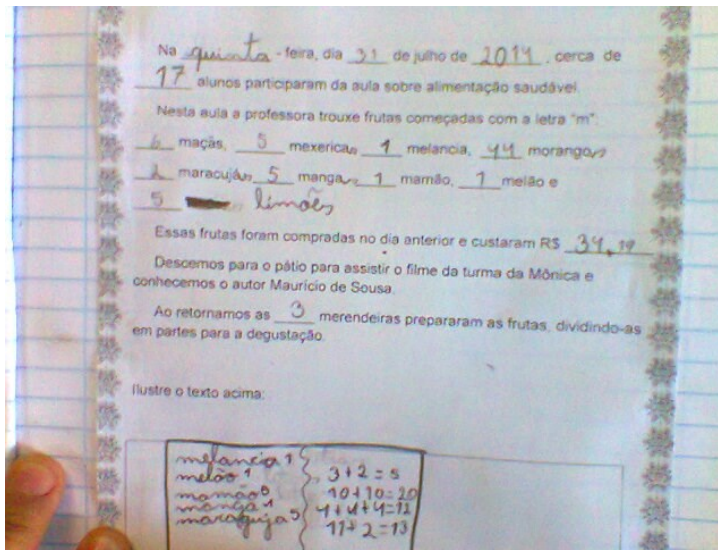 Na quinta - feira, dia 31 de julho de 2014, cerca de
17 alunos participaram da aula sobre alimentação saudável.
Nesta aula a professora trouxe frutas começadas com a letra "m":
6 maçãs, 5 mexericas, 1 melancia, 44 morangos,
2 maracujás, 5 mangas, 1 mamão, 1 melão e
5 limões
Essas frutas foram compradas no dia anterior e custaram R$ 34,19
Descemos para o pátio para assistir o filme da turma da Mônica e
conhecemos o autor Maurício de Sousa.
Ao retornamos as 3 merendeiras prepararam as frutas, dividindo-as
em partes para a degustação.
Ilustre o texto acima:
melancia 1
melão 1
mamão
manga
3+2=5
10+10=20
4+4+4=12
11+2=13